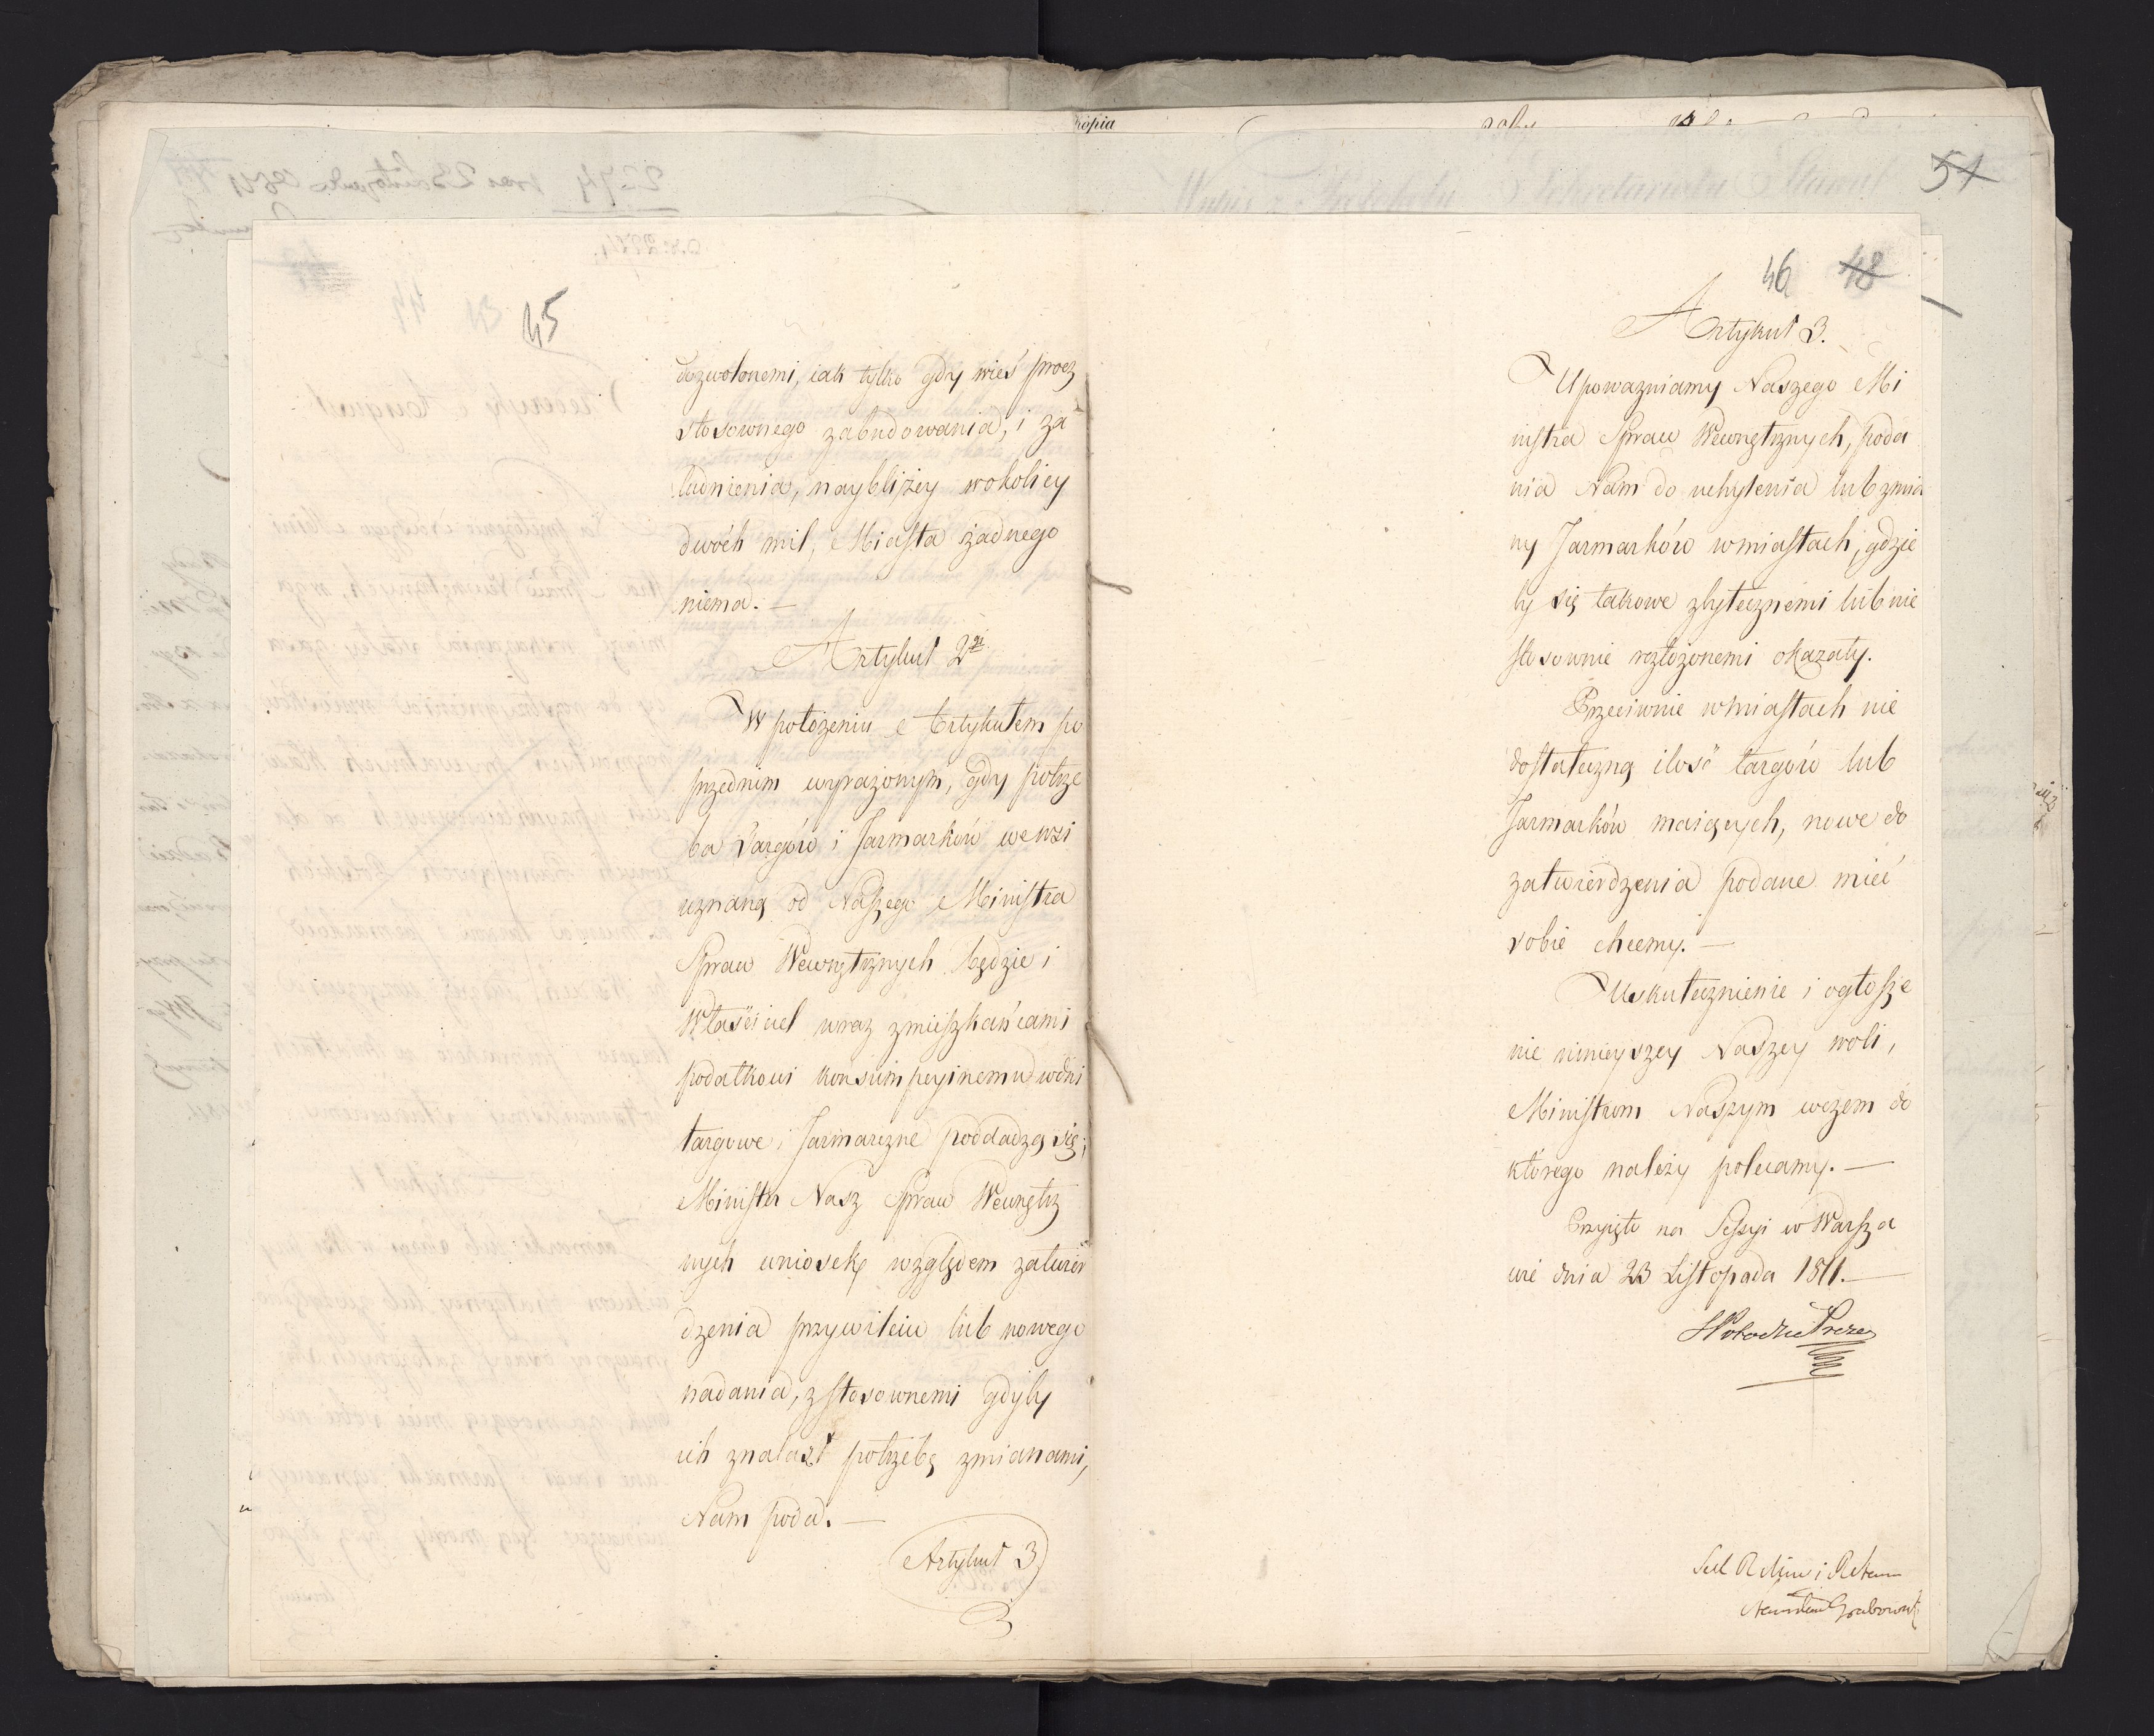 45
dozwolonemi, iak tylko gdy wieś procz
stosownego zabudowania, i za
ludnienia, naybliżey wokolicy
dwóch mil, Miasta żadnego
niema. —
Artykuł 2gi
W położeniu Artykułem po
przednim wyrażonym, gdy potrze
ba Targów i Jarmarków we wsi
uznaną od Naszego Ministra
Spraw Wewnętrznych będzie i
Właściciel wraz zmieszkańcami
podatkowi konsumpcyinemu wdni
targowe i Jarmarczne poddadzą się;
Minister Nasz Spraw Wewnętrz
nych wniosek względem zatwier
dzenia przywileiu lub nowego
nadania, z stosownemi gdyby
ich znalazł potrzebę zmianami,
Nam poda. —
Artykuł 3
54
46 48
Artykuł 3.
Upoważniamy Naszego Mi
nistra Spraw Wewnętrznych, poda
nia Nam do uchylenia lub zmia
ny Jarmarków wmiastach, gdzie
by się takowe zbytecznemi lub nie
stosownie rozłożonemi okazały.
Przeciwnie wmiastach nie
dostateczną ilość targów lub
Jarmarków maiących, nowe do
zatwierdzenia podane mieć
sobie chcemy. —
Uskutecznienie i ogłosze
nie ninieyszey Naszey woli,
Ministrom Naszym wczem do
którego należy polecamy. —
Przyięto na Sessyi w Warsza
wie dnia 23 Listopada 1811. —
Prezes
i
Grabowski